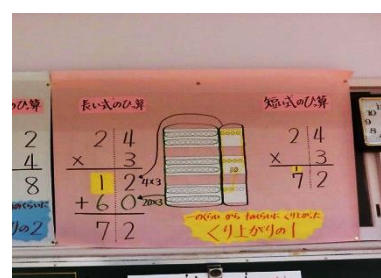 のひっ算
2
4
8
のくらいに
りの2
長い式のひっ算
24
× 3
12 4×3
+60 20×3
72
10
短い式のひっ算
24
× 3
1
72
一のくらいから十のくらいにくり上がった
くり上がりの1
11
10
9
8